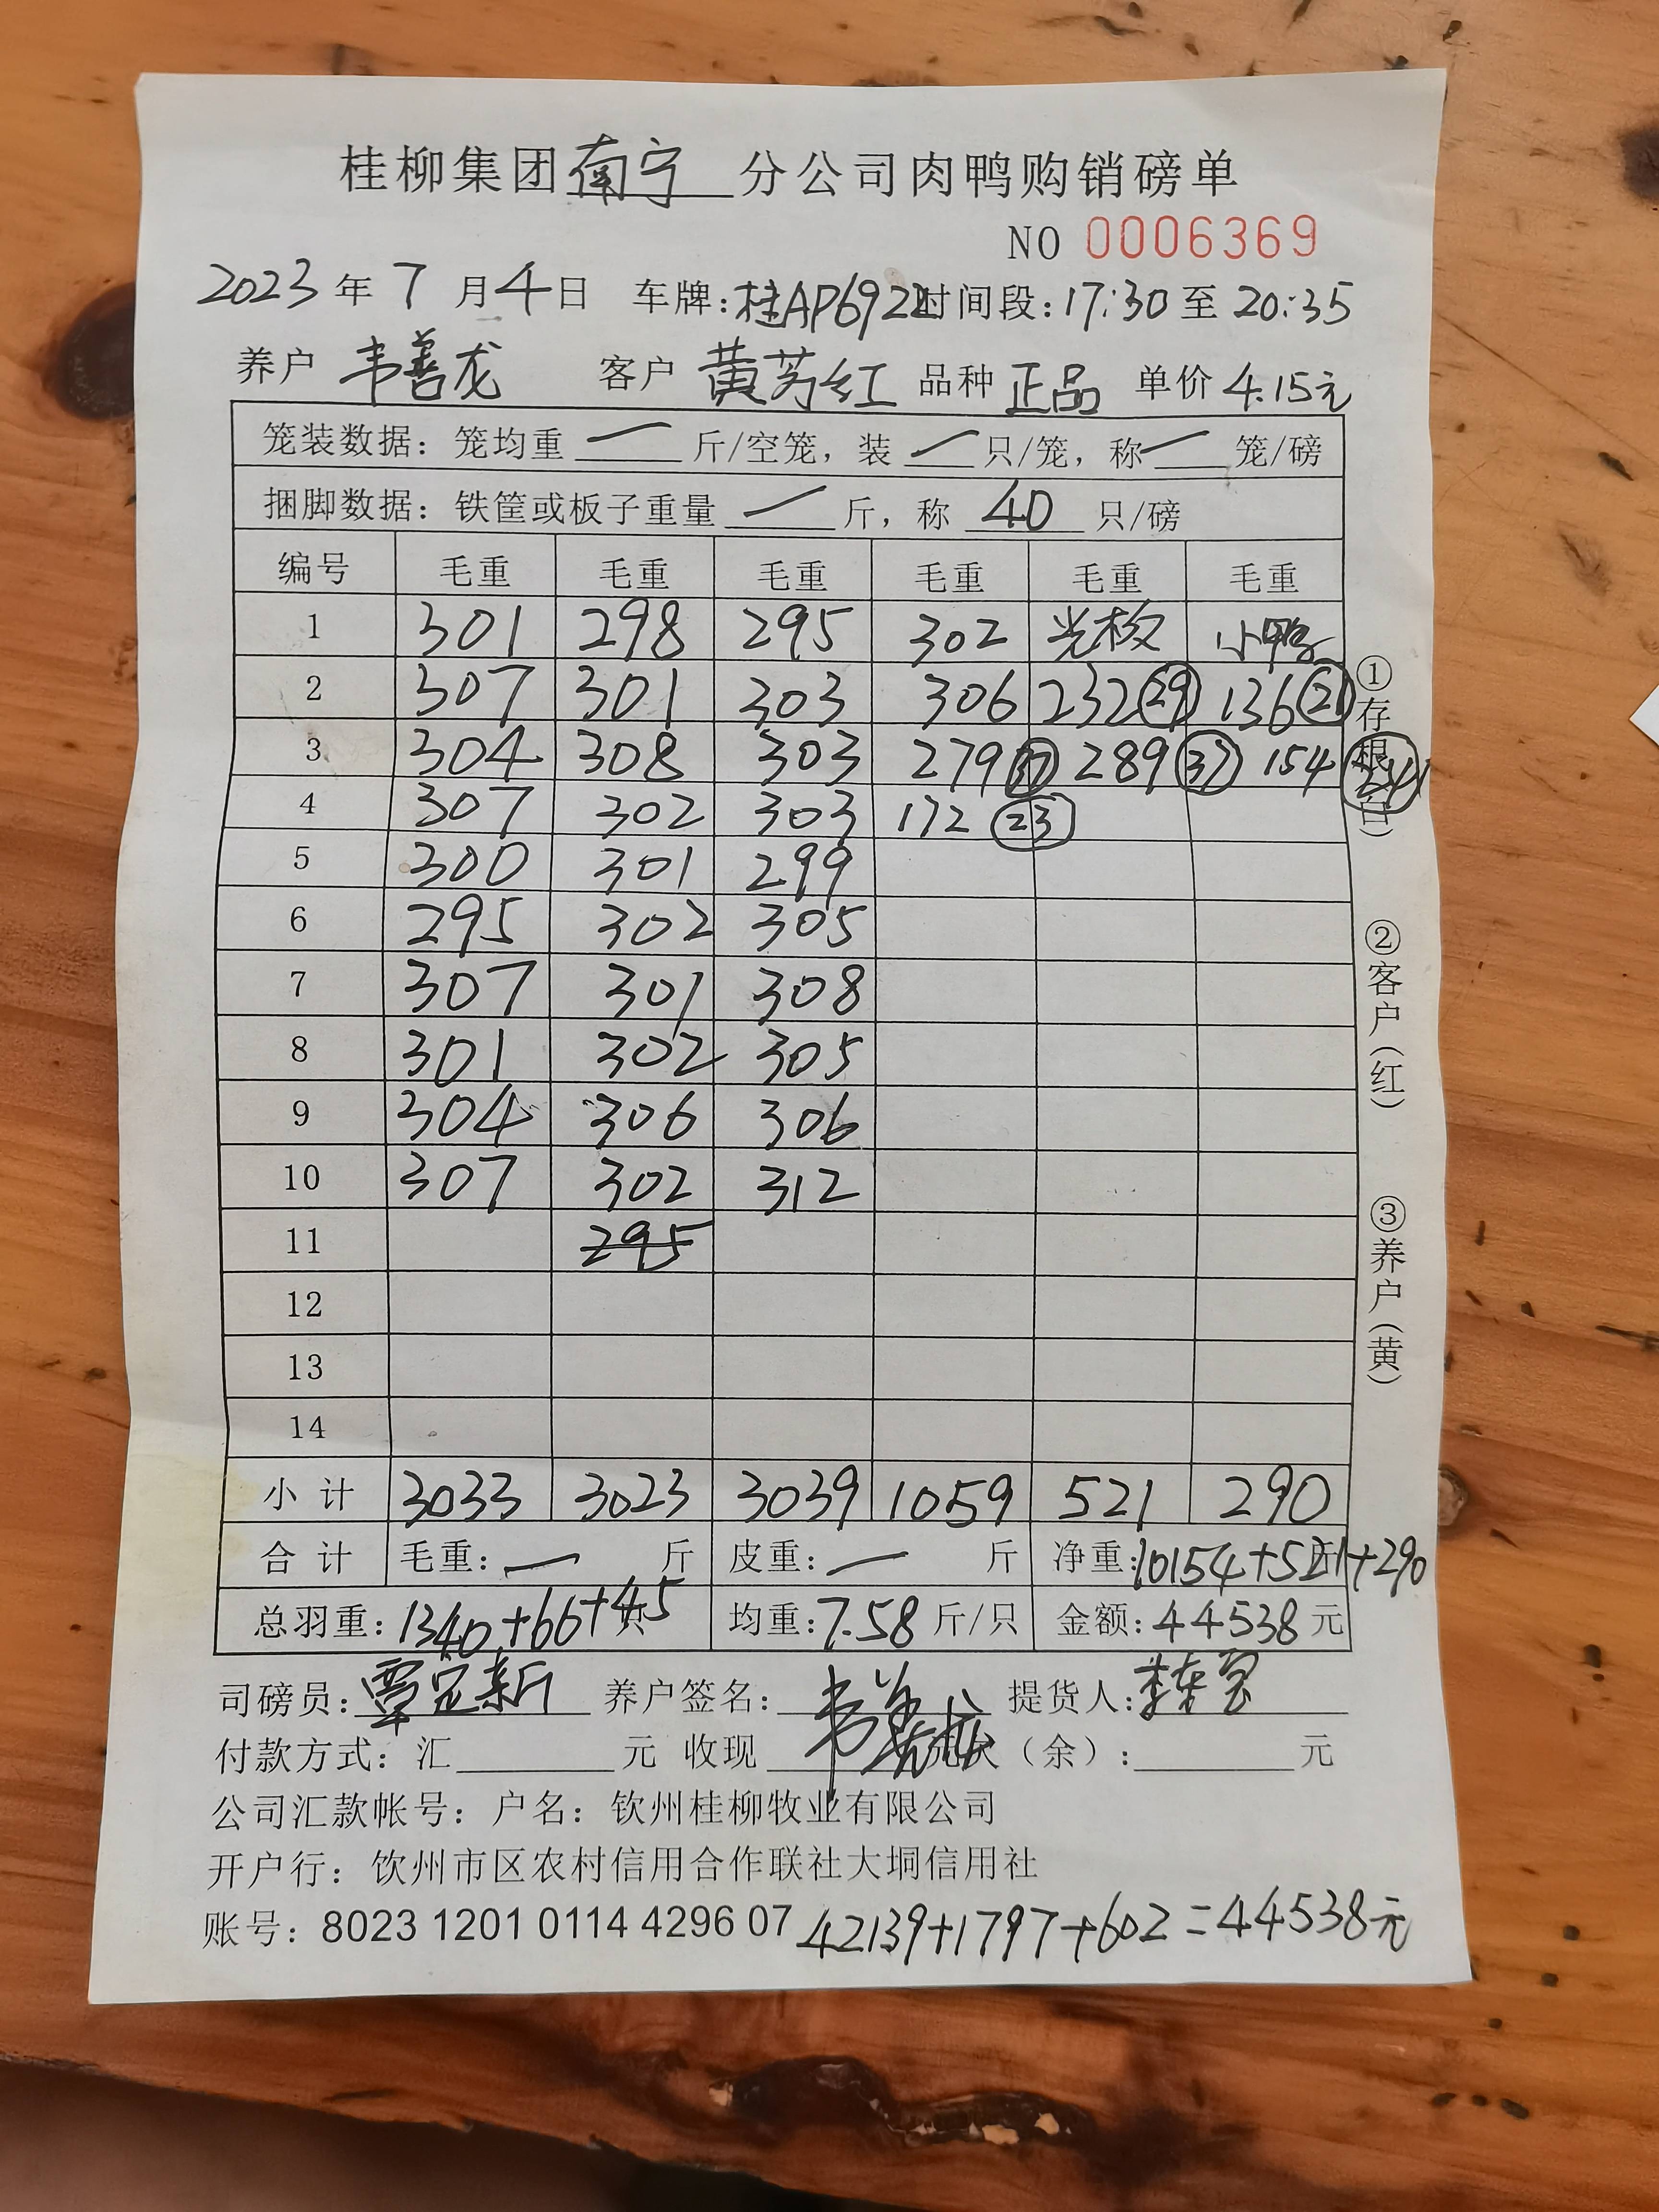 桂柳集团南宁分公司肉鸭购销磅单
NO 0006369
2023年7月4日 车牌:桂AP6922 时间段:17:30至20:35
养户 韦善龙 客户 黄芳红 品种 正品 单价 4.15元
笼装数据：笼均重 — 斤/空笼，装 — 只/笼，称 — 笼/磅
捆脚数据：铁筐或板子重量 — 斤，称 40 只/磅
编号 毛重 毛重 毛重 毛重 毛重 毛重
1 301 298 295 302 光板 小鸭
2 307 301 303 306 232 29 136 21
3 304 308 303 279 37 289 37 154 24
4 307 302 303 172 23
5 300 301 299
6 295 302 305
7 307 301 308
8 301 302 305
9 304 306 306
10 307 302 312
11 295
12
13
14
小计 3033 3023 3039 1059 521 290
合计 毛重：— 斤 皮重：— 斤 净重:10154+521+290
总羽重：1340+66+45只 均重:7.58斤/只 金额:44538元
司磅员: 养户签名: 韦善龙 提货人:
付款方式：汇 元 收现 （余）： 元
公司汇款帐号：户名：钦州桂柳牧业有限公司
开户行：饮州市区农村信用合作联社大垌信用社
账号：8023 1201 0114 4296 07 42139+1797+602=44538元
①存根（白）
②客户（红）
③养户（黄）